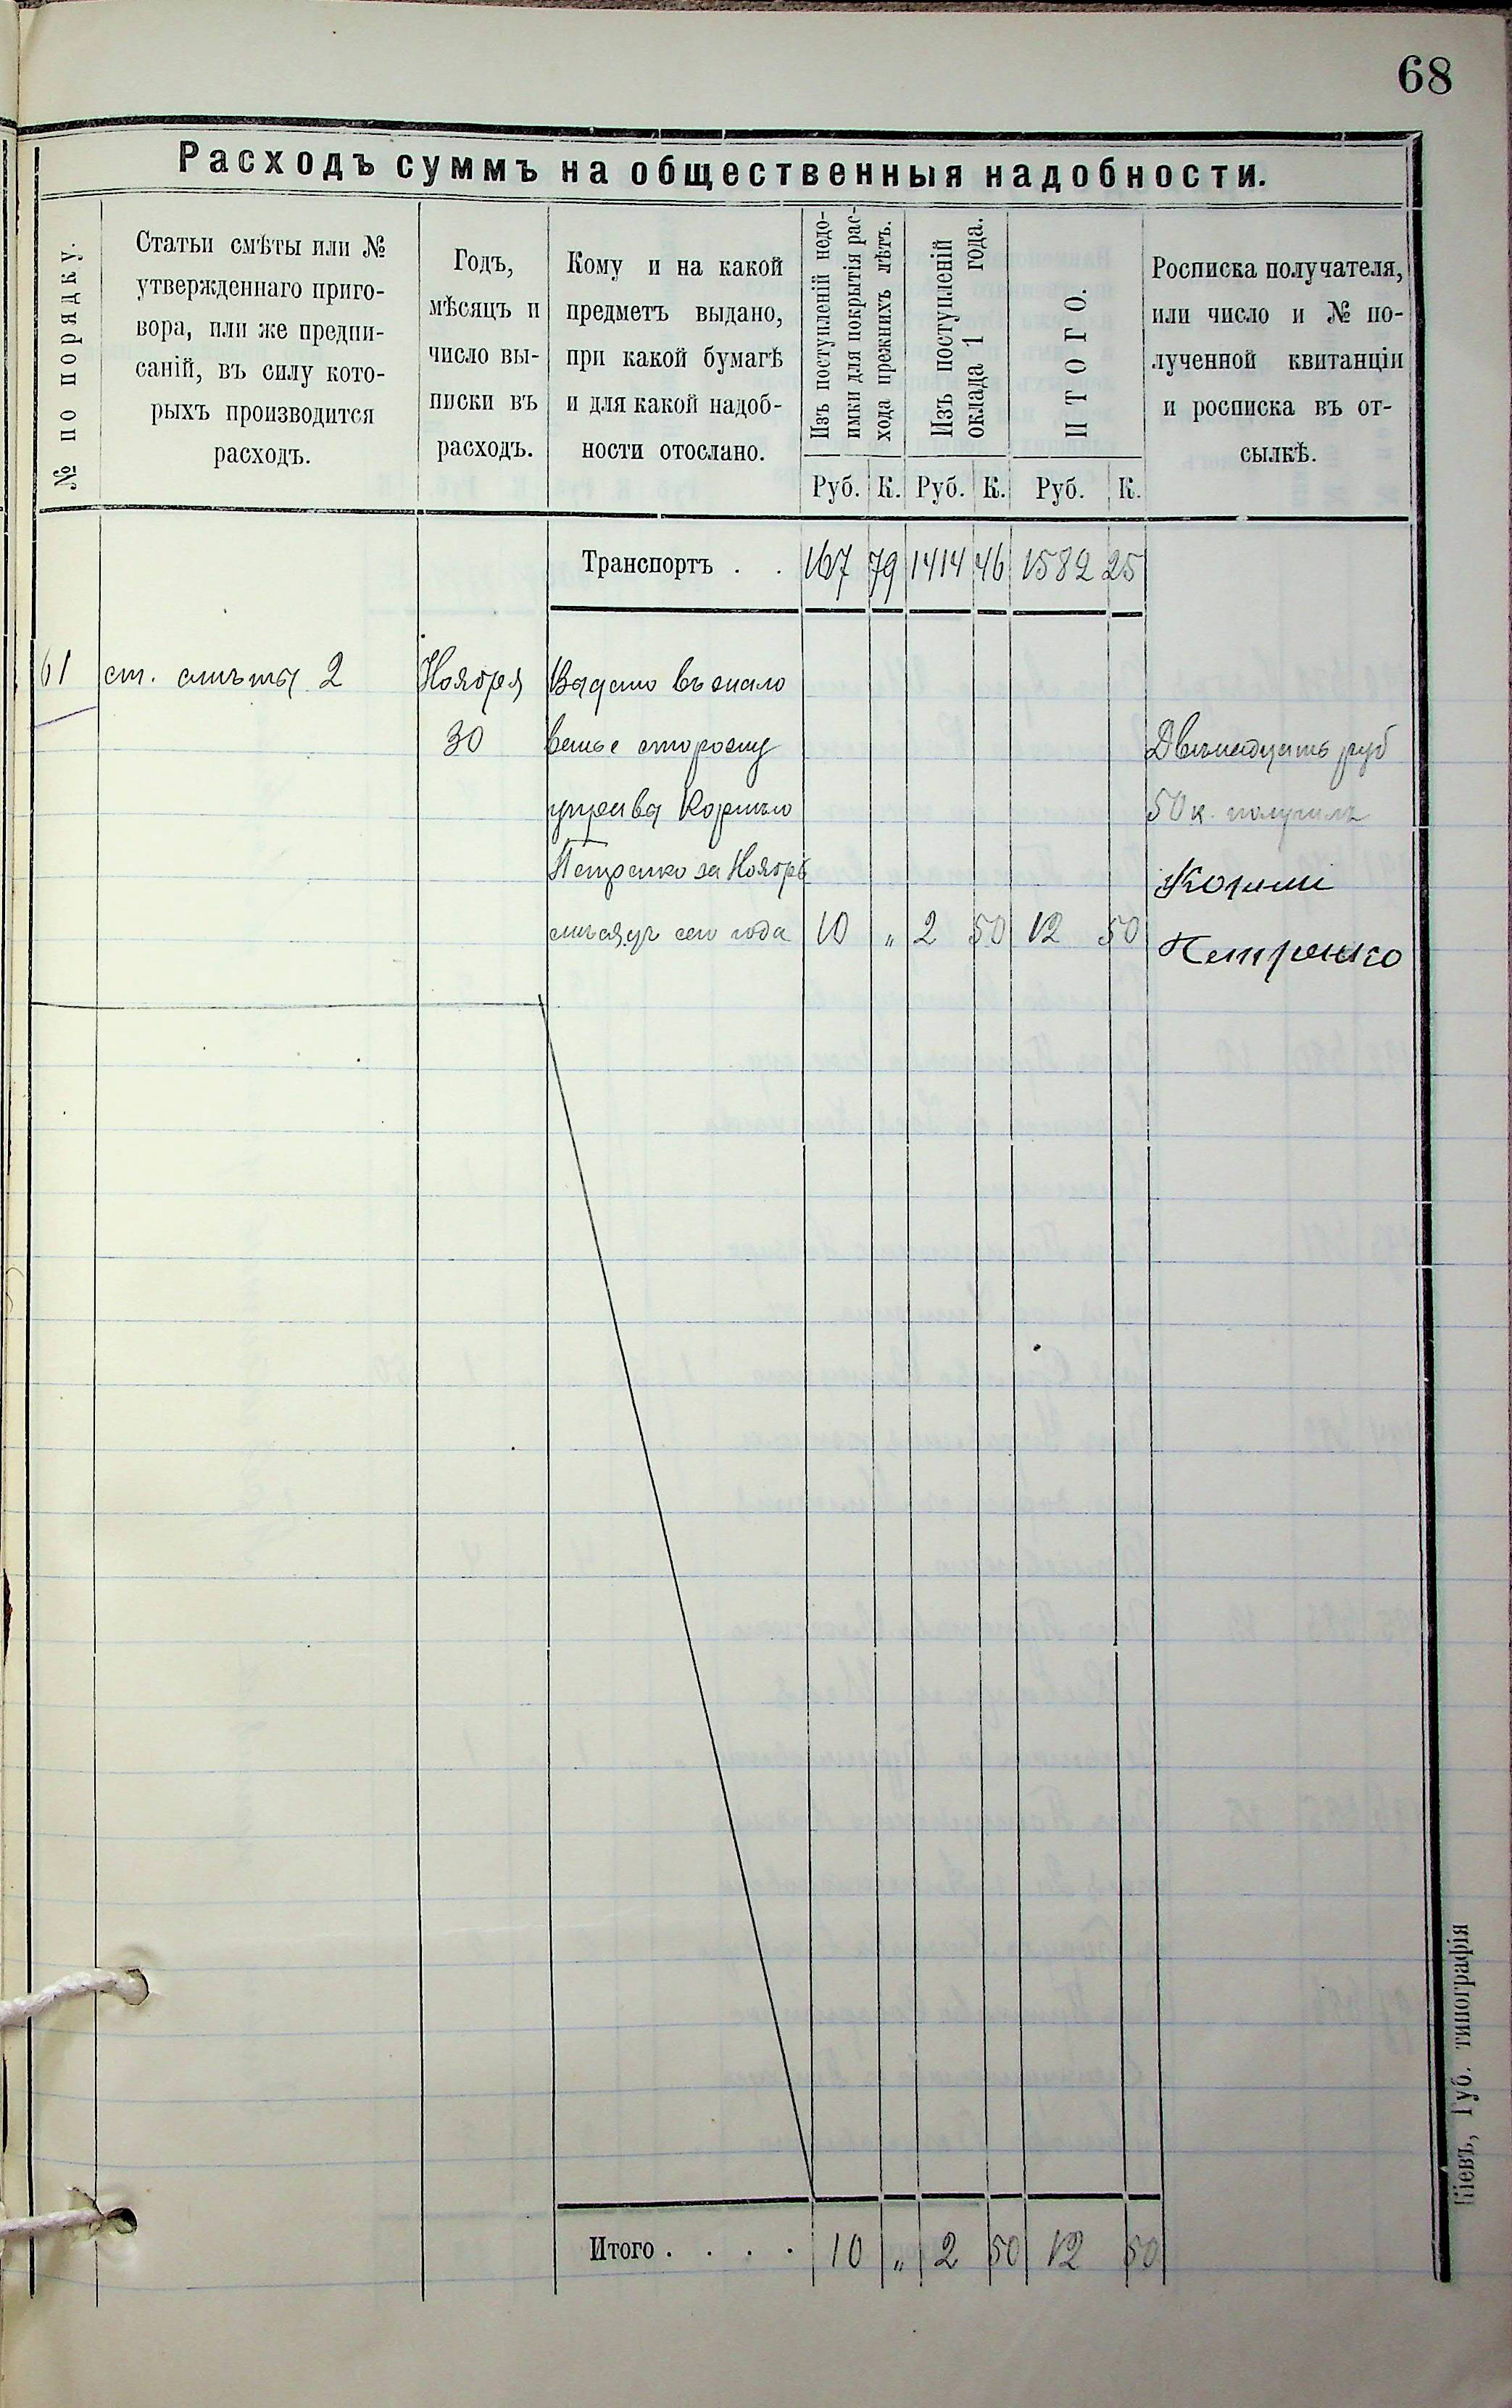 68
Расходъ суммъ на общественныя надобности.
№ по порядку.
Статьи смѣты или №
утвержденнаго приго-
вора, или же предпи-
саній, въ силу кото-
рыхъ производится
расходъ.
Годъ,
мѣсяцъ и
число вы-
писки въ
расходъ.
Кому и на какой
предметъ выдано,
при какой бумагѣ
и для какой надоб-
ности отослано.
Изъ поступленій недо-
имки для покрытія рас-
хода прежнихъ лѣтъ.
Изъ поступленій
оклада 1 года.
ИТОГО.
Росписка получателя,
или число и № по-
лученной квитанціи
и росписка въ от-
сылкѣ.
Руб. К. Руб. К. Руб. К.
Транспортъ . . 167 79 1414 46 1582 25
61 ст. смѣты 2 Ноября Выдано въ жало
30 ванье сторожу Двѣнадцать руб
управы 50 к. получилъ
Петренко за Ноябрь
мѣсяцъ сего года 10 „ 2 50 12 50
Петренко
Итого . . . . 10 „ 2 50 12 50
Кіевъ, Губ. типографія